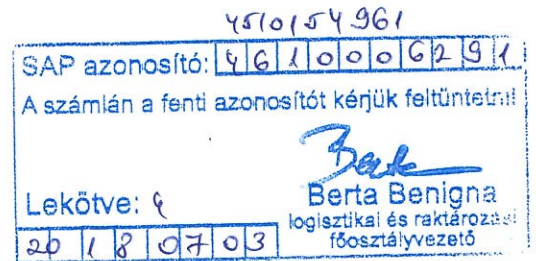 4510154961
SAP azonosító: 4610006291
A számlán a fenti azonosítót kérjük feltüntetni!
Lekötve:
Berta Benigna
logisztikai és raktározási
főosztályvezető
20180703